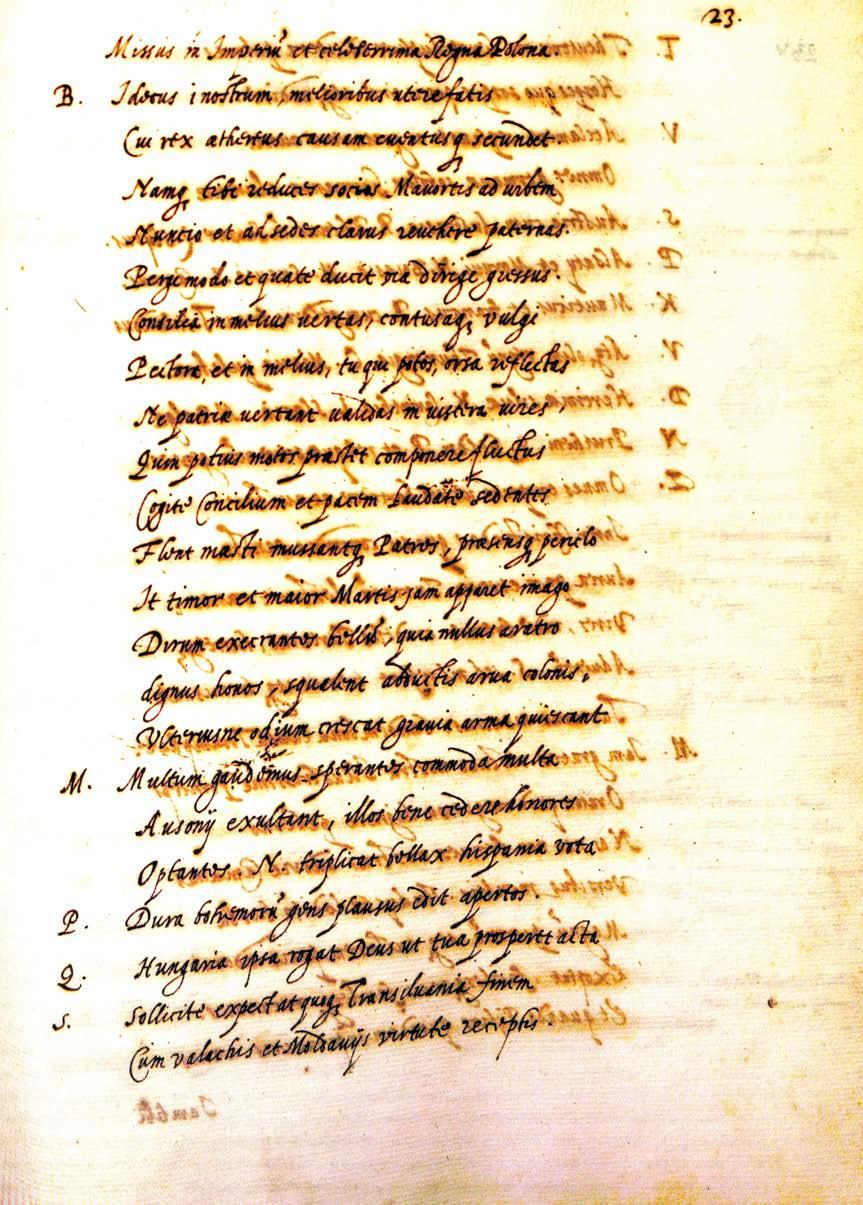 23.
Missus in Imperiũ et celeberrima Regna Polona.
B. I decus i nostrum, melioribus utere fatis
Cui rex æthereus causam eventusq; secundet.
Namq; tibi reduces socios Mavortis ad urbem
Nuncio et ad sedes clarus revehere paternas.
Perge modo et qua te ducit via dirige gressus.
Consilia in melius vertas, contusaq; vulgi
Pectora, et in melius, tu qui potes, orsa reflectas
Ne patriæ vertant validas in viscera vires,
Quin potius motos præstet componere fluctus
Cogite Concilium et pacem laudate sedentes
Flent mæsti mussantq; Patres, præsensq; periclo
It timor et maior Martis jam apparet imago
Dirum execrantes bellũ, quia nullus aratro
dignus honos, squalent abductis arva colonis,
Ulteriusne odium crescat gravia arma quiescant
M. Multum gaudemus sperantes commoda multa
Ausonij exultant, illos bene cedere honores
Optantes. N. triplicat bellax hispania vota
P. Dura bohemorũ gens plausus edit apertos.
Q. Hungaria ipsa rogat Deus ut tua prosperet acta
S. Sollicite expectat quoq; Transilvania finem
Cum valachis et Moldavijs virtute receptis.